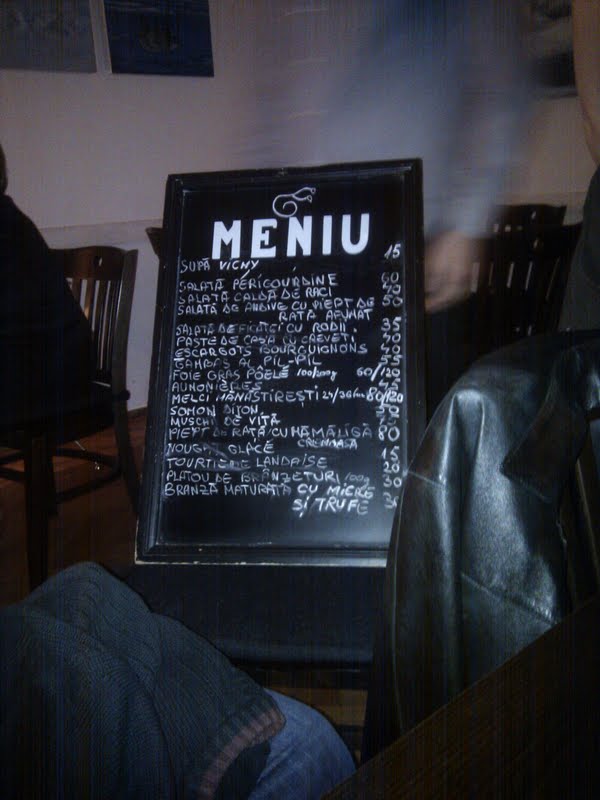 MENIU
SUPĂ VICHY 15
SALATĂ PERICOURDINE 60
SALATĂ CALDĂ DE RACI
SALATĂ DE ANDIVE CU PIEPT DE 50
RAȚĂ AFUMAT
SALATĂ DE FICĂȚEI CU RODII 35
PASTE DE CASĂ CU CREVEȚI
ESCARGOTS BOURGUIGNONS
GAMBAS AL PIL-PIL
FOIE GRAS POÊLÉ 100/200g 60/120
MELCI MÂNĂSTIREȘTI 80/120
SOMON DIJON
MUSCHI DE VITĂ
PIEPT DE RAȚĂ CU MĂMĂLIGĂ 80
CREMOASĂ
NOUGAT GLACÉ 15
TOURTIÈRE LANDAISE 20
PLATOU DE BRÂNZETURI 100g 30
BRÂNZĂ MATURATĂ CU MIERE
ȘI TRUFE